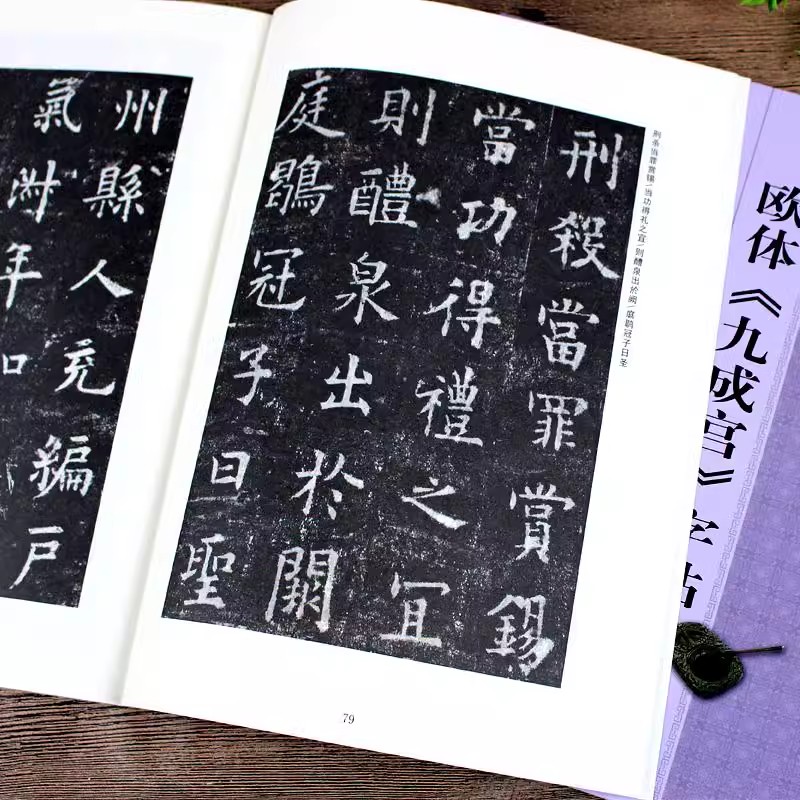 刑殺當罪賞錫
當功得禮之宜
則醴泉出於闕
庭鶡冠子曰聖
刑杀当罪赏锡/当功得礼之宜/则醴泉出於阙/庭鹖冠子曰圣
79
州縣人充編戶
氣淑年
欧体《九成宫》字帖